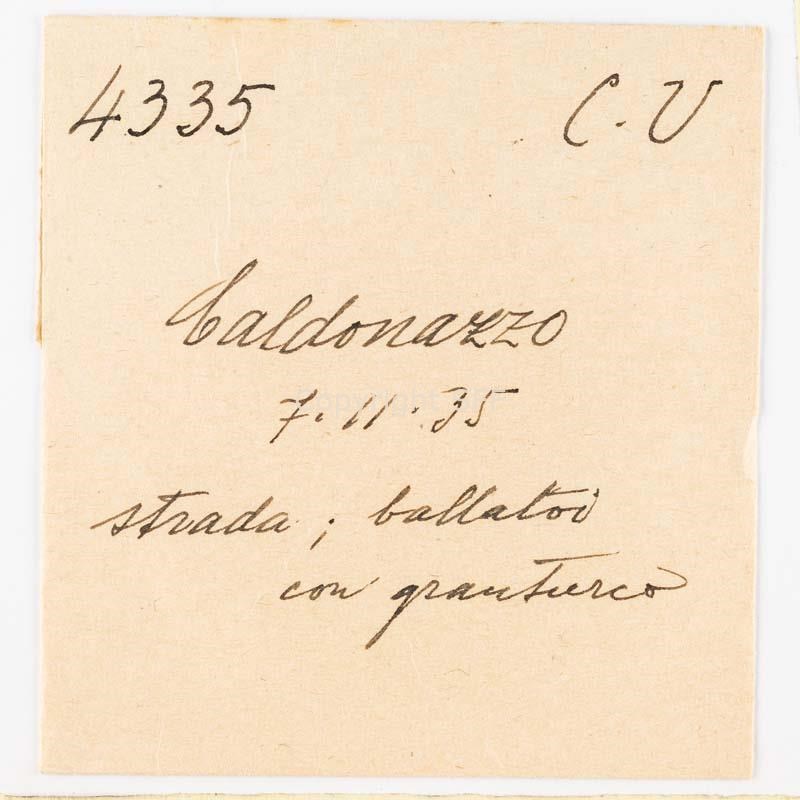 4335 C.V
Caldonazzo
7.11.35
strada ; ballatoi
con granturco